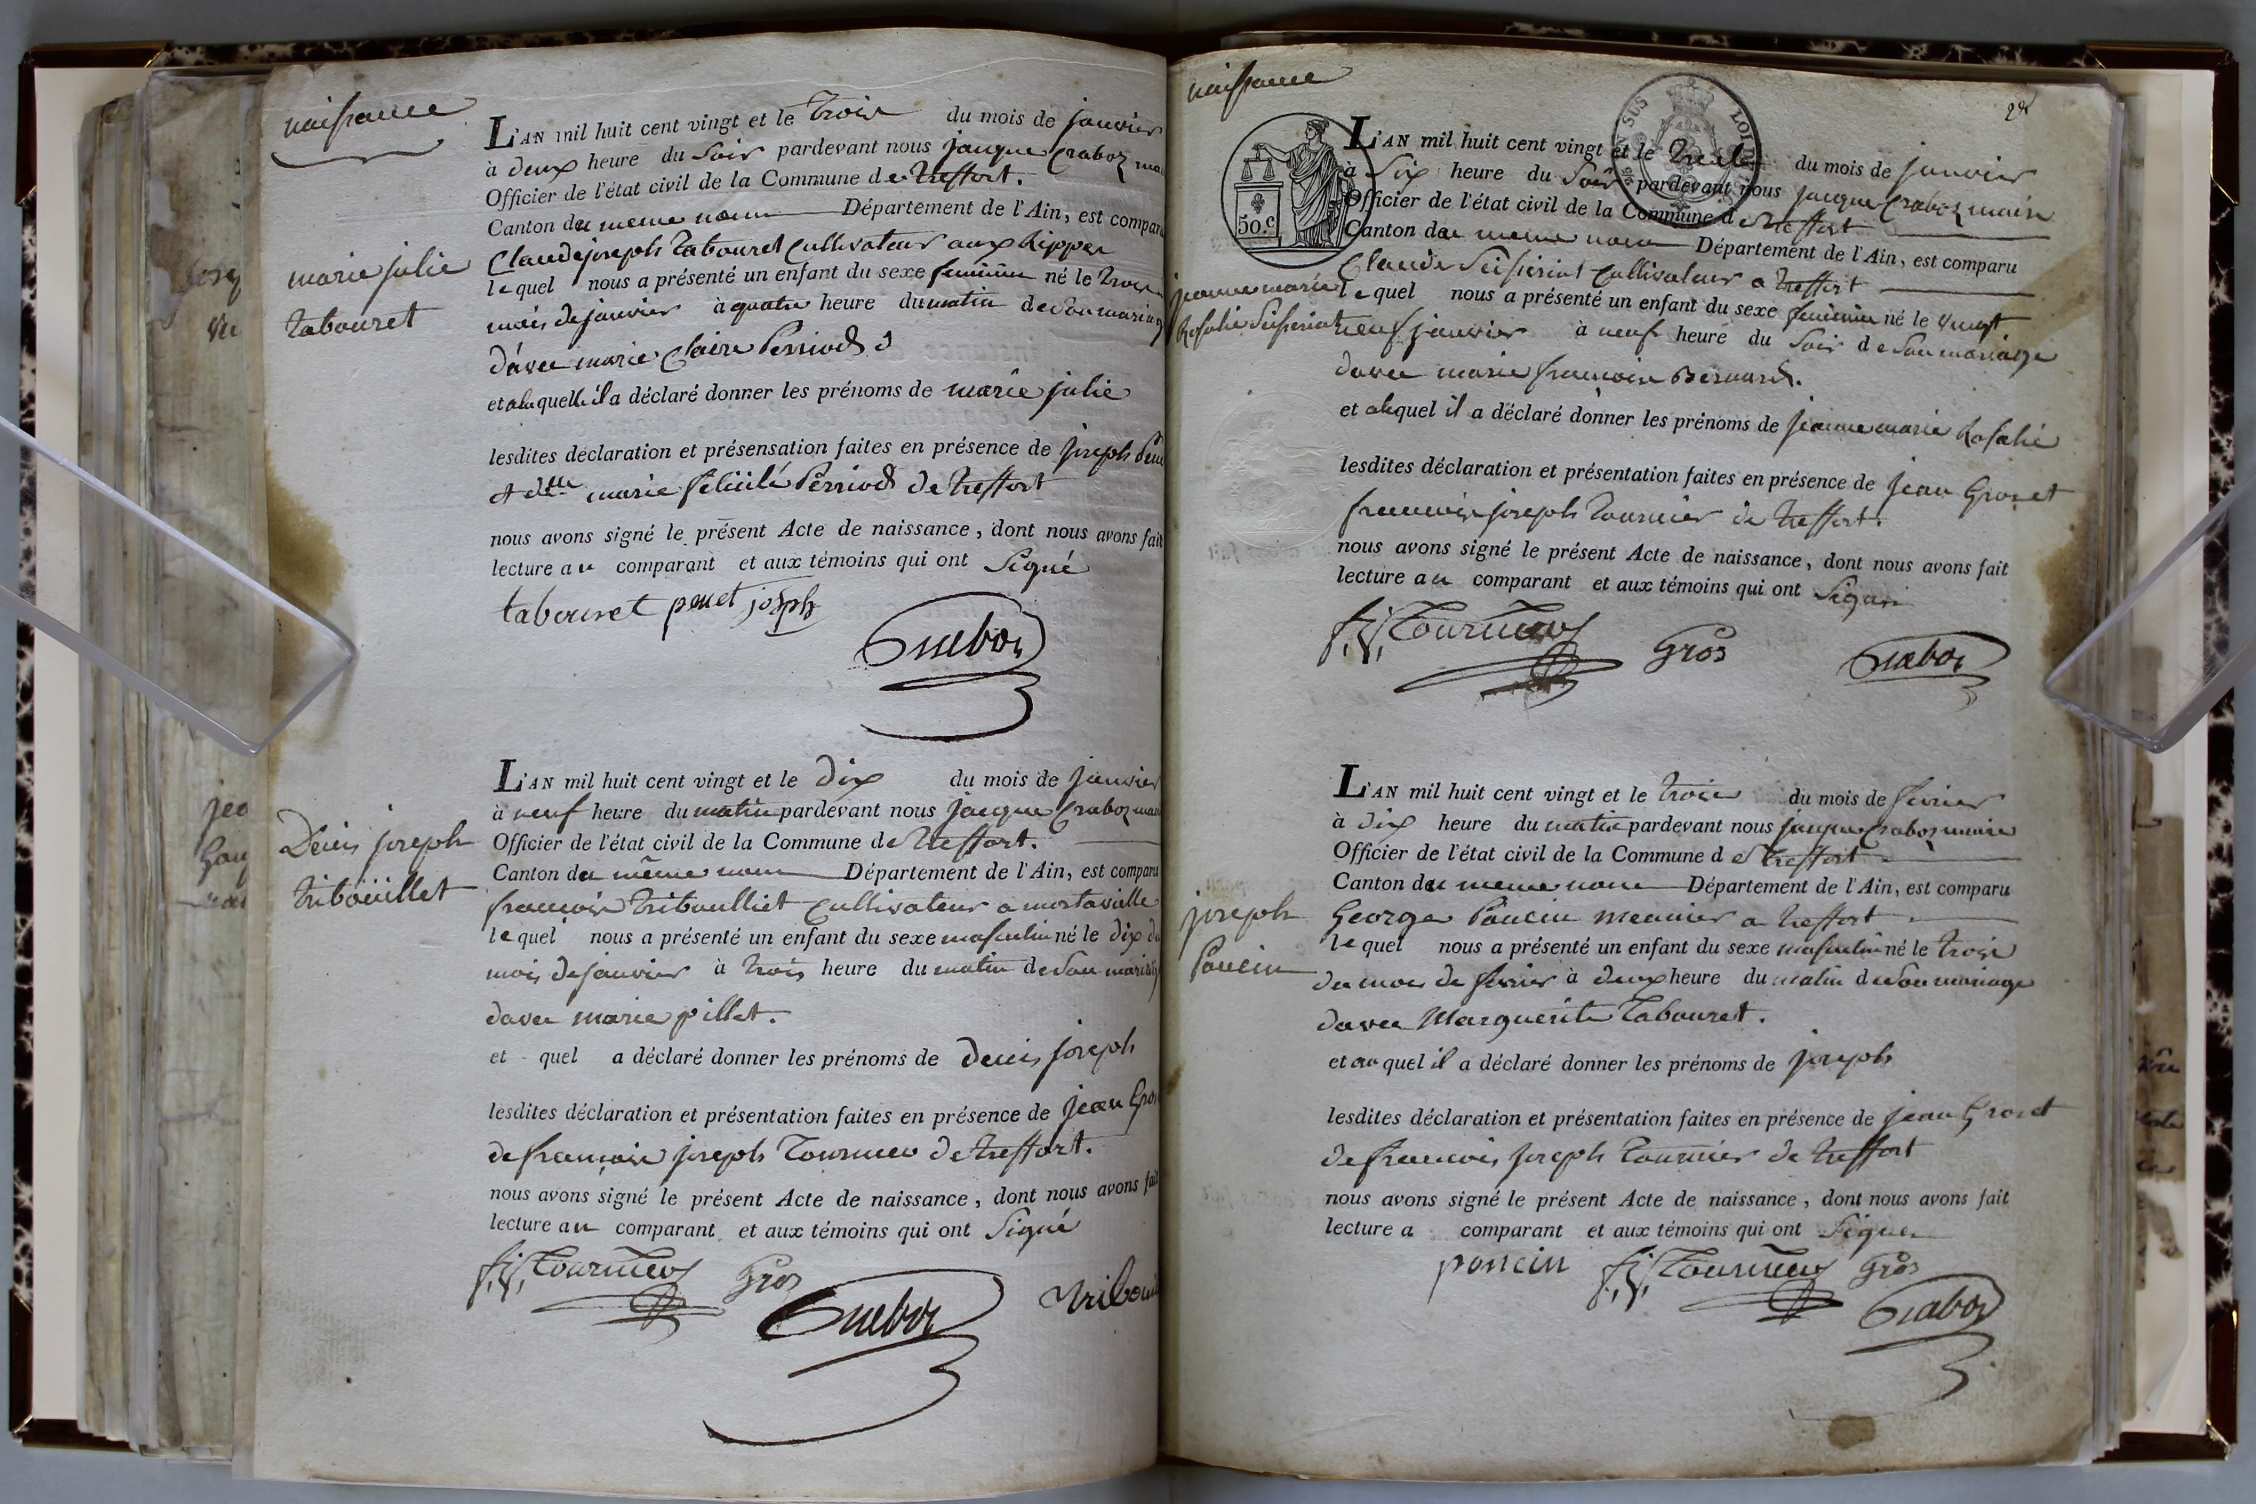 naissance
L'AN mil huit cent vingt et le trois du mois de janvier
à deux heure du soir pardevant nous jacque Craboz
Officier de l'état civil de la Commune de treffort.
Canton du meme nom Département de l'Ain, est comparu
Claude joseph tabouret Cultivateur aux
marie julie
tabouret
lequel nous a présenté un enfant du sexe feminin né le trois
mois de janvier à quatre heure du matin de son mariage
d'avec marie Claire Perriod
et a laquelle il a déclaré donner les prénoms de marie julie
lesdites déclaration et présensation faites en présence de joseph
et dlle marie felicité Perriod de treffort
nous avons signé le présent Acte de naissance, dont nous avons fait
lecture au comparant et aux témoins qui ont signé
tabouret penet joseph
Craboz
L'AN mil huit cent vingt et le dix du mois de janvier
à neuf heure du matin pardevant nous jacque Craboz
Denis joseph
tribouillet
Officier de l'état civil de la Commune de treffort.
Canton du même nom Département de l'Ain, est comparu
françois triboulliet Cultivateur a
lequel nous a présenté un enfant du sexe masculin né le dix du
mois de janvier à trois heure du matin de son mariage
davec marie pillet.
et quel a déclaré donner les prénoms de denis joseph
lesdites déclaration et présentation faites en présence de jean Gros
de françois joseph tournier de treffort.
nous avons signé le présent Acte de naissance, dont nous avons fait
lecture au comparant et aux témoins qui ont signé
f. j. Tournier Gros
Craboz
naissance
L'AN mil huit cent vingt et le trente du mois de janvier
à six heure du soir pardevant nous jacque Craboz maire
Officier de l'état civil de la Commune de treffort
Canton du meme nom Département de l'Ain, est comparu
50.c
Claude Cultivateur a treffort
jeanne marie
Rosalie
lequel nous a présenté un enfant du sexe feminin né le vingt
neuf janvier à neuf heure du soir de son mariage
davec marie françoise Bernard.
et a quel il a déclaré donner les prénoms de jeanne marie Rosalie
lesdites déclaration et présentation faites en présence de jean Gros et
françois joseph tournier de treffort.
nous avons signé le présent Acte de naissance, dont nous avons fait
lecture au comparant et aux témoins qui ont
f. j. Tournier Gros Craboz
L'AN mil huit cent vingt et le trois du mois de fevrier
à dix heure du matin pardevant nous jacque Craboz maire
Officier de l'état civil de la Commune de treffort
Canton du meme nom Département de l'Ain, est comparu
joseph
Poncin
George Poncin meunier a treffort
lequel nous a présenté un enfant du sexe masculin né le trois
du mois de fevrier à deux heure du matin de son mariage
davec Marguerite Tabouret.
et au quel il a déclaré donner les prénoms de joseph
lesdites déclaration et présentation faites en présence de jean Gros et
de francois joseph tournier de treffort
nous avons signé le présent Acte de naissance, dont nous avons fait
lecture a comparant et aux témoins qui ont
poncin f. j. Tournier Gros
Craboz